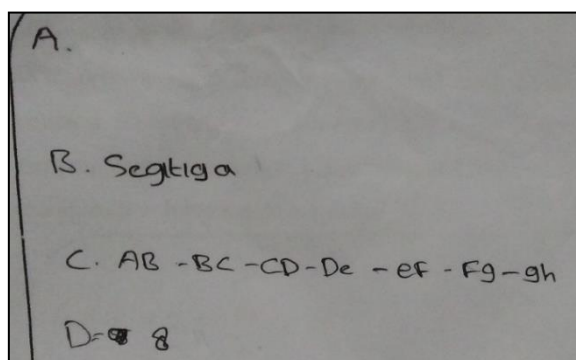 A.
B. Segitiga
C. AB - BC - CD - De - ef - Fg - gh
D = 8